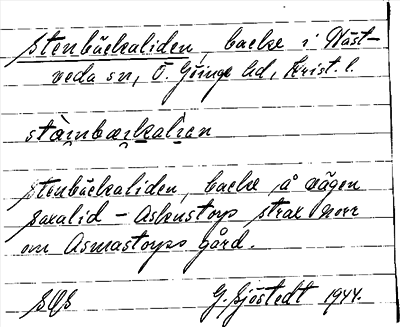 Stenbäckaliden, backe i Näst-
veda sn, Ö. Göinge hd, Krist. l.
stàinbærkalian
Stenbäckaliden, backe å vägen
Saxalid - Askenstorp strax norr
om Asmastorps gård.
G. Sjöstedt 1944.